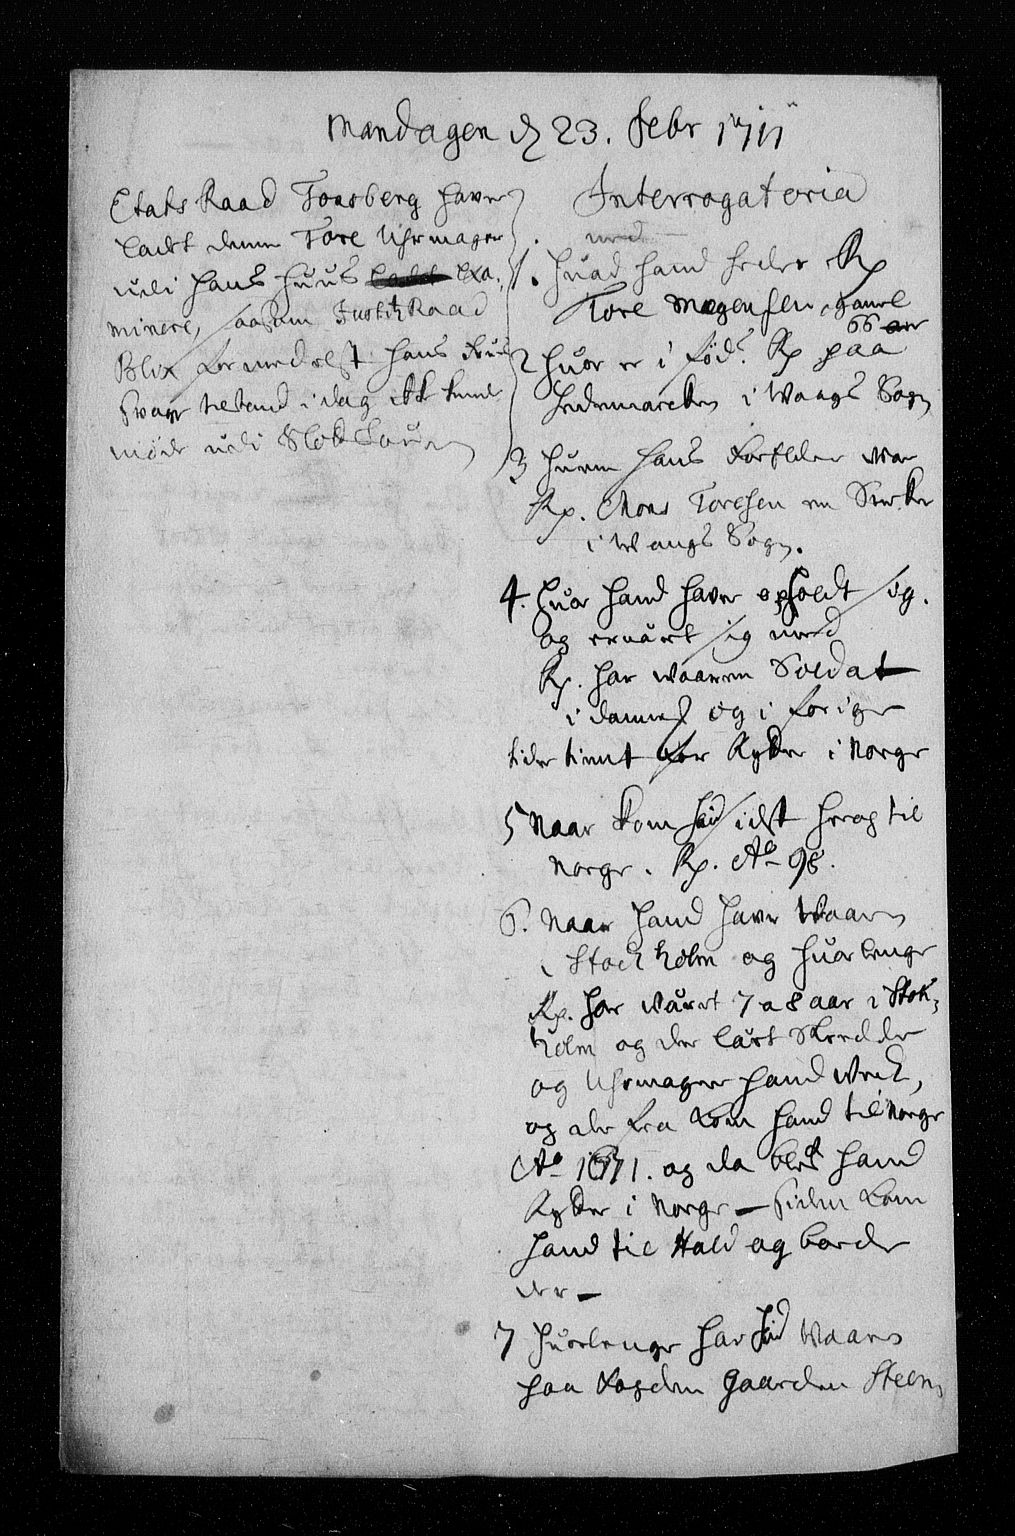 Mandagen d 23. Febr 1711
Etats Raad Tonsberg haver
ladt denne Tore Uhrmager
udi hans Huus Exa-
minere, saasom Justitz Raad
Blix formedelst hans
Svage tilstand i dag ikke kunde
møde udi Slotzlouen
Interrogatoria
1. Huad hand heder Rp
Tore Mogensen, gamel
66 aar
2 Huor er i fød? Rp paa
Hedemarcken i Waags Sogn
3 Huem hans Forældre var
Rp. Mons Toresen en
i Wangs Sogn.
4. Huor hand haver opholdt sig.
og ernært sig med
Rp. har waaren Soldat
i danmk og i forige
tider tient for Rytter i Norge
5 Naar kom hand sidst herop til
Norge. Rp. Ao 98.
6. Naar hand haver Waaren
i Stockholm og huorlenge
Rp. har været 7 a 8 aar i Stok-
holm og der lært Skredder
og Uhrmager handverck,
og der fra kom hand til Norge
Ao 1671. og da blef hand
Rytter i Norge — siden kom
hand til Hald og boede
der —
7 Huorlenge har hand Waaren
paa Fogden Gaarden Steen